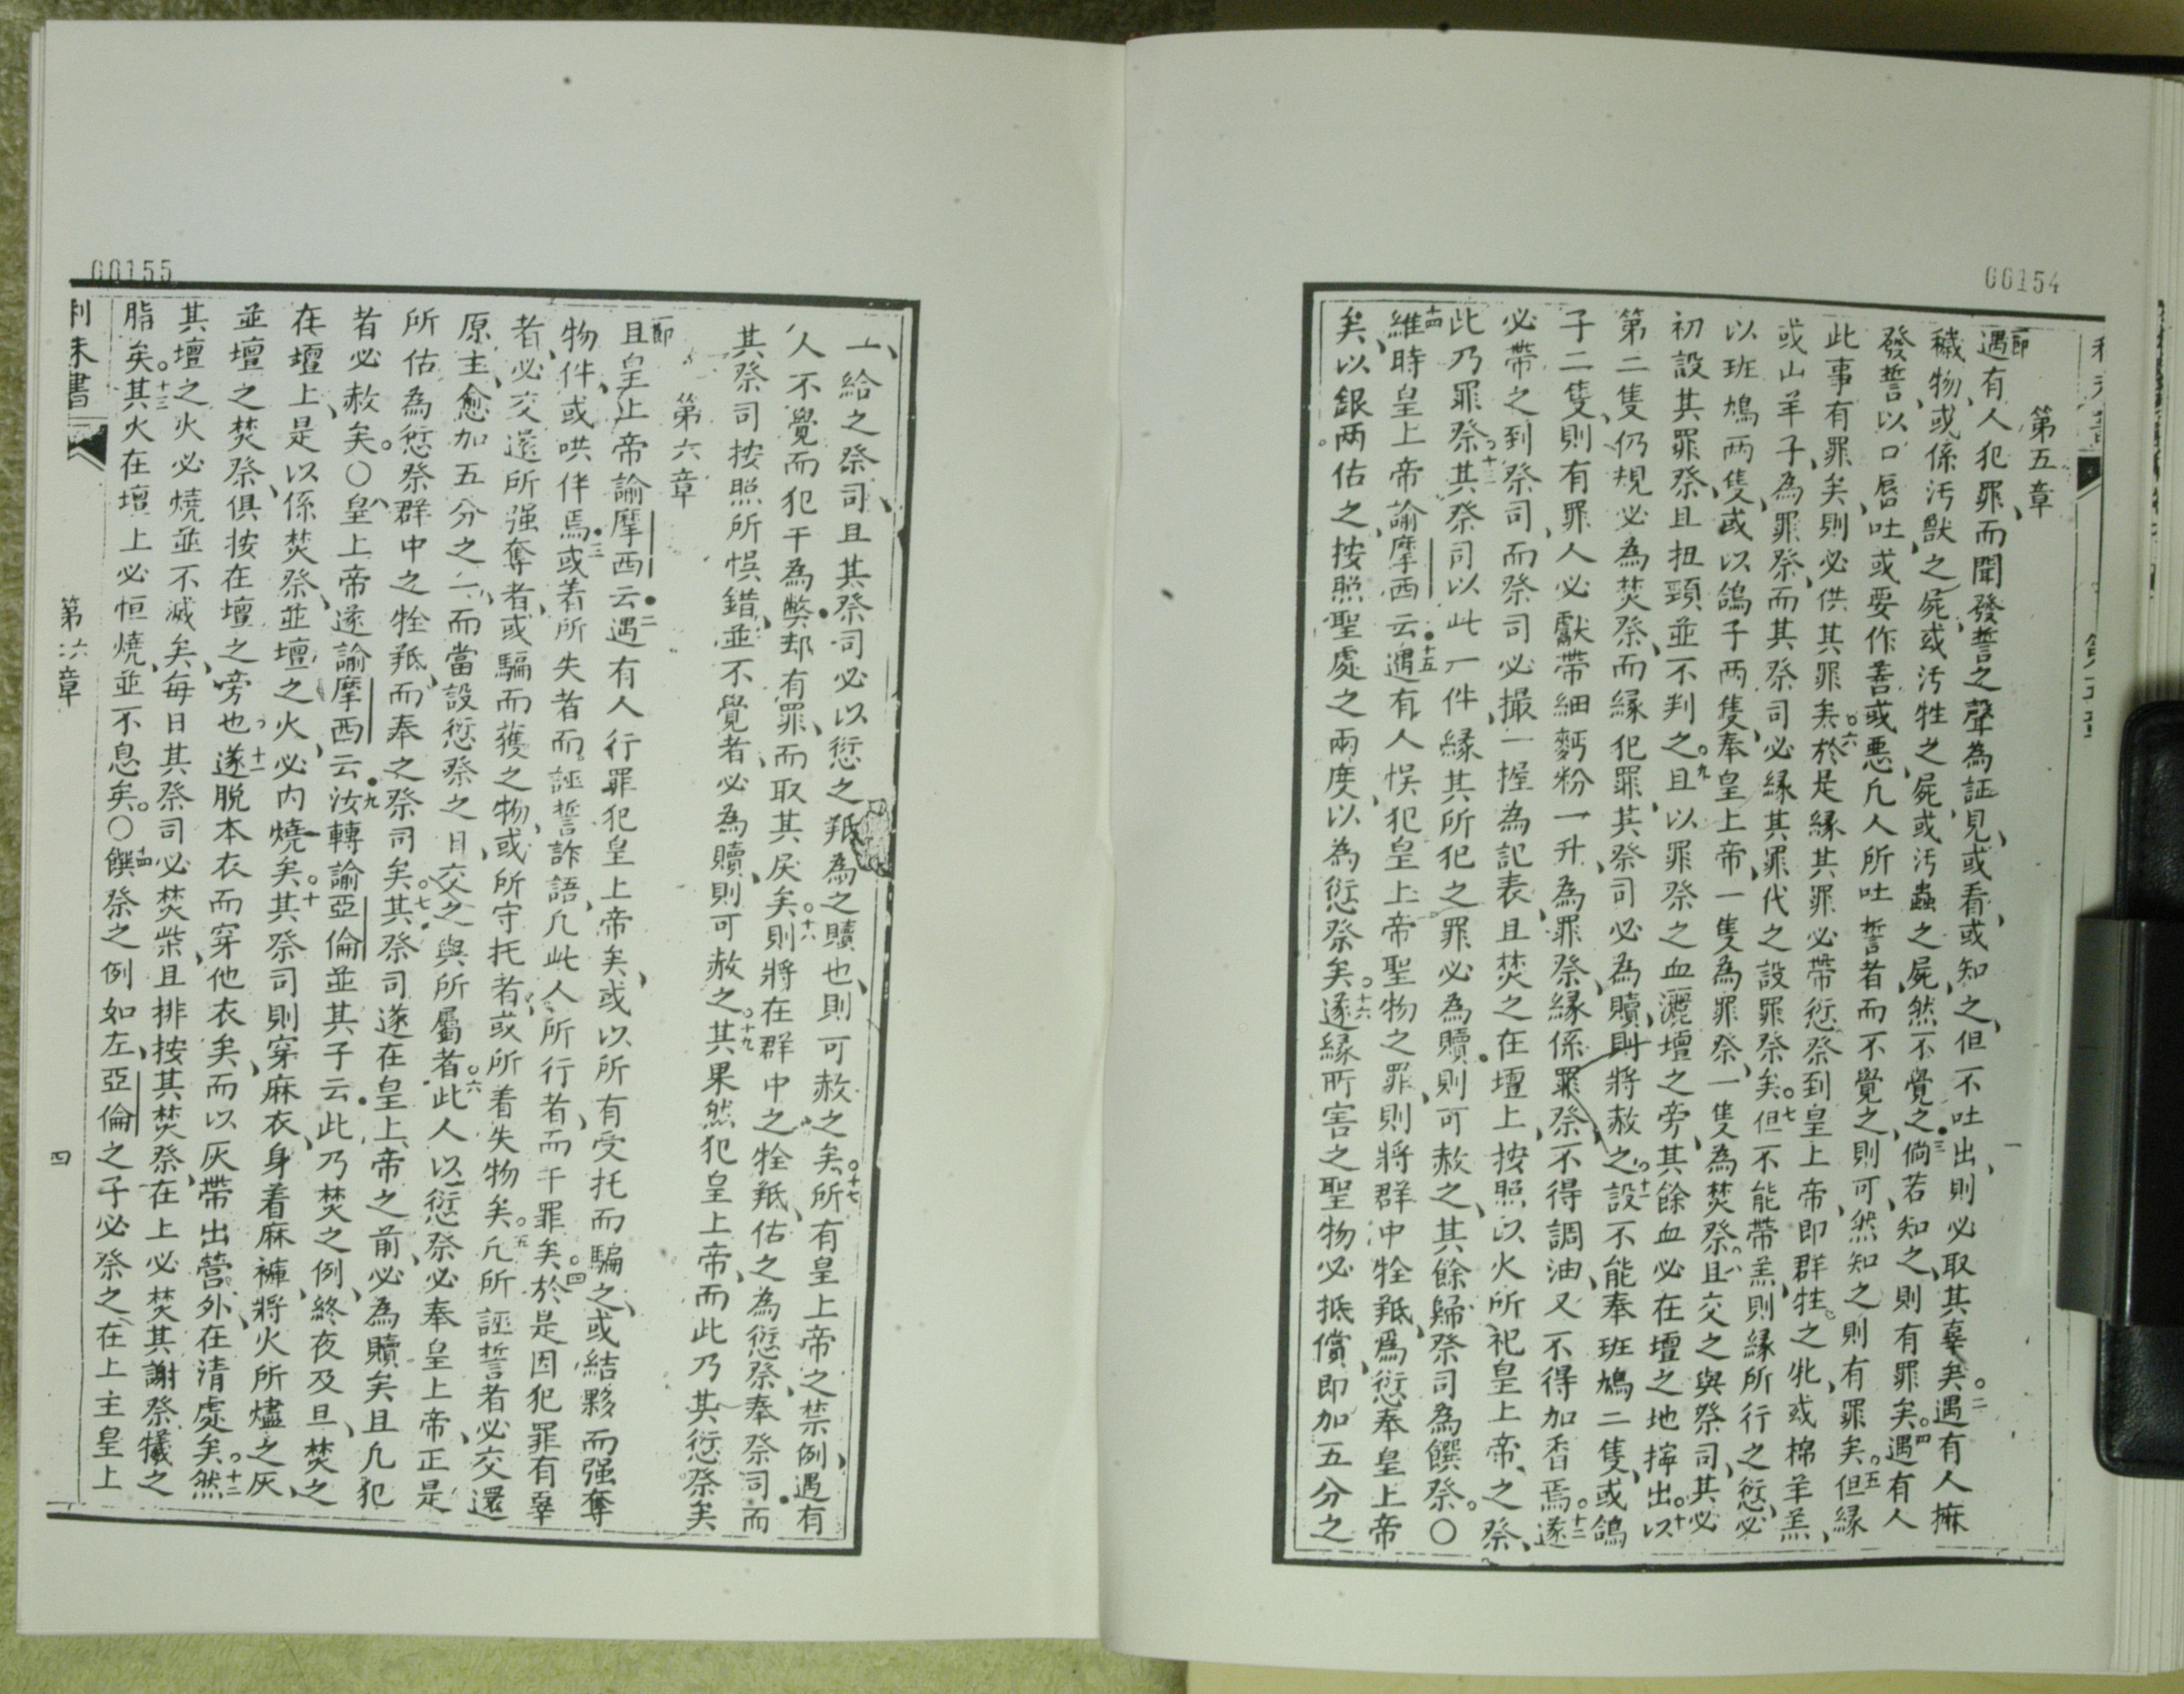 00154
第五章
一節遇有人犯罪、而聞發誓之聲為証見、或看、或知之、但不吐出、則必取其辜矣。二遇有人摸
穢物、或係汚獸之屍、或汚牲之屍、或汚蟲之屍、然不覺之、三倘若知之、則有罪矣。四遇有人
發誓、以口唇吐、或要作善或惡、凡人所吐誓者、而不覺之、則可、然知之、則有罪矣。五但緣
此事有罪矣、則必供其罪矣。六於是緣其罪必帶愆祭到皇上帝即群牲之牝或棉羊羔、
或山羊子、為罪祭、而其祭司必緣其罪代之設罪祭矣。七但不能帶羔、則緣所行之愆、必
以班鳩兩隻、或以鴿子兩隻、奉皇上帝、一隻為罪祭、一隻為焚祭。八且交之與祭司、其必
初設其罪祭、且扭頸並不判之。九且以罪祭之血灑壇之旁、其餘血必在壇之地擰出。十以
第二隻仍規必為焚祭、而緣犯罪、其祭司必為贖、則將赦之。十一設不能奉班鳩二隻、或鴿
子二隻、則有罪人必獻帶細麪粉一升、為罪祭、緣係罪祭、不得調油、又不得加香焉。十二遂
必帶之到祭司、而祭司必撮一握為記表、且焚之在壇上、按照以火所祀皇上帝之祭、
此乃罪祭。十三其祭司以此一件緣其所犯之罪必為贖、則可赦之、其餘歸祭司為饌祭。○
十四維時皇上帝諭摩西云、十五遇有人悞犯皇上帝聖物之罪、則將群中牷羝、爲愆奉皇上帝
矣、以銀両估之、按照聖處之兩度、以為愆祭矣。十六遂緣所害之聖物必抵償、即加五分之
00155
一、給之祭司、且其祭司必以愆之羝為之贖也、則可赦之矣。十七所有皇上帝之禁例、遇有
人不覺而犯干為弊、却有罪、而取其戾矣。十八則將在群中之牷羝、估之為愆祭、奉祭司、而
其祭司按照所悞錯、並不覺者、必為贖、則可赦之。十九其果然犯皇上帝、而此乃其愆祭矣
第六章
一節且皇上帝諭摩西云、二遇有人行罪犯皇上帝矣、或以所有受托而騙之、或結夥而强奪
物件、或哄伴焉、三或着所失者而誣誓詐語、凡此人所行者、而干罪矣。四於是因犯罪有辜
者、必交還所强奪者、或騙而獲之物、或所守托者、或所着失物矣。五凡所誣誓者、必交還
原主、愈加五分之一、而當設愆祭之日、交之與所屬者。六此人以愆祭必奉皇上帝、正是
所估為愆祭群中之牷羝、而奉之祭司矣。七其祭司遂在皇上帝之前、必為贖矣、且凡犯
者必赦矣。○八皇上帝遂諭摩西云、九汝轉諭亞倫並其子云、此乃焚之例、終夜及旦、焚之
在壇上、是以係焚祭、並壇之火、必内燒矣。十其祭司則穿麻衣、身着麻褲、將火所燼之灰、
並壇之焚祭、俱按在壇之旁也。十一遂脱本衣而穿他衣矣、而以灰帶出營外、在清處矣。十二然
其壇之火必燒並不滅矣、每日其祭司必焚柴、且排按其焚祭、在上必焚其謝祭犧之
脂矣。十三其火在壇上必恒燒並不息矣。○十四饌祭之例如左、亞倫之子必祭之在上主皇上
利未書
第六章
四